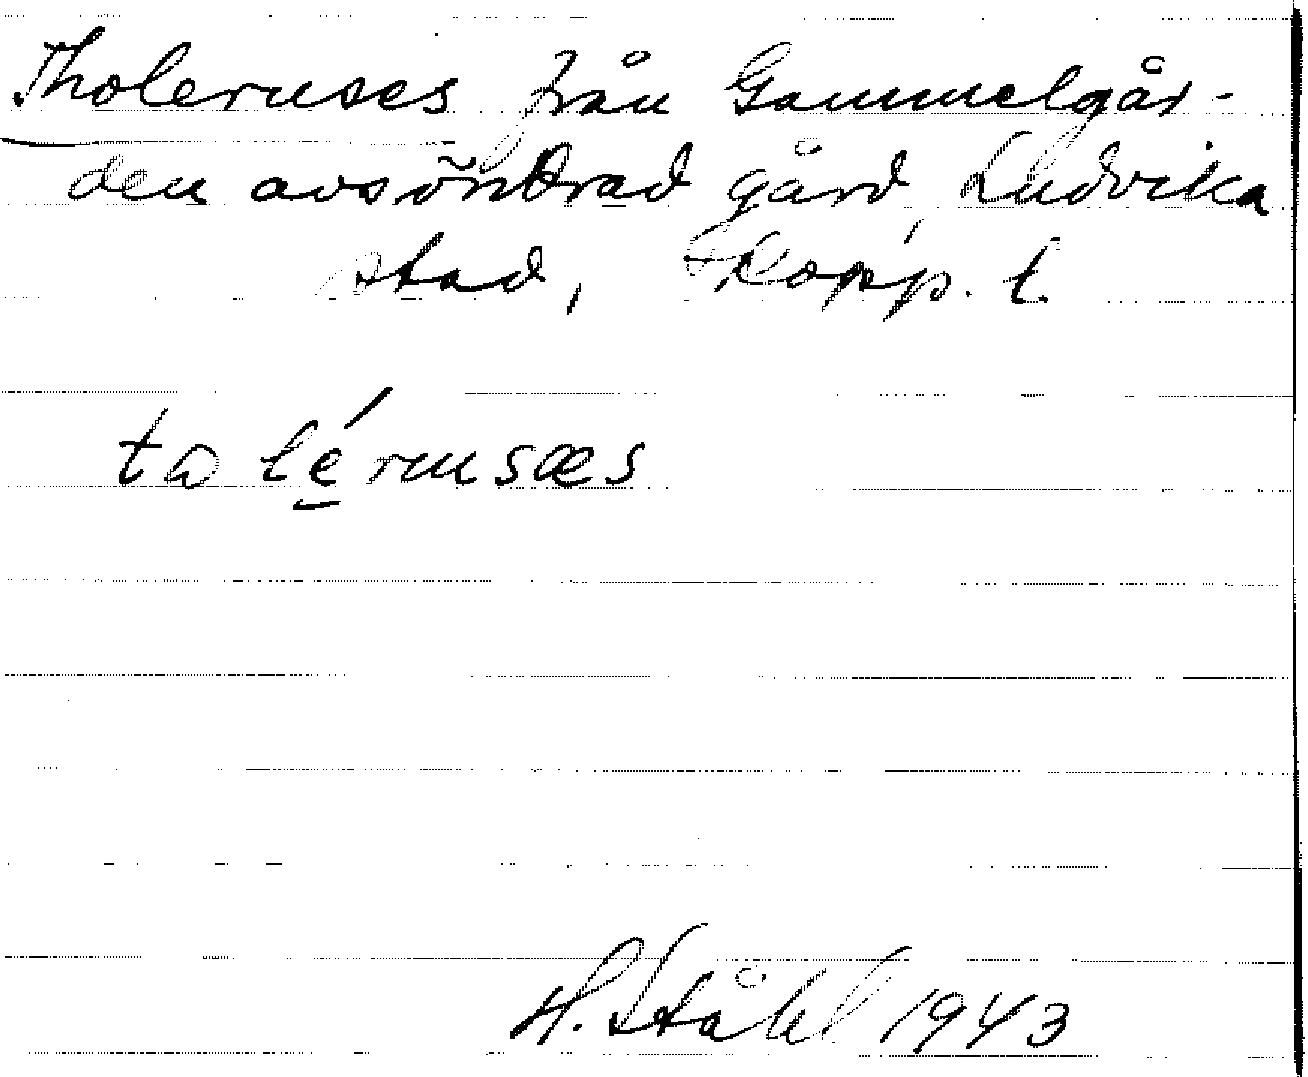 Tholeruses från Gammelgår-
den avsöndrad gård, Ludvika
stad, Kopp. l.
tω lé̱rusæs
H. Ståhl 1943